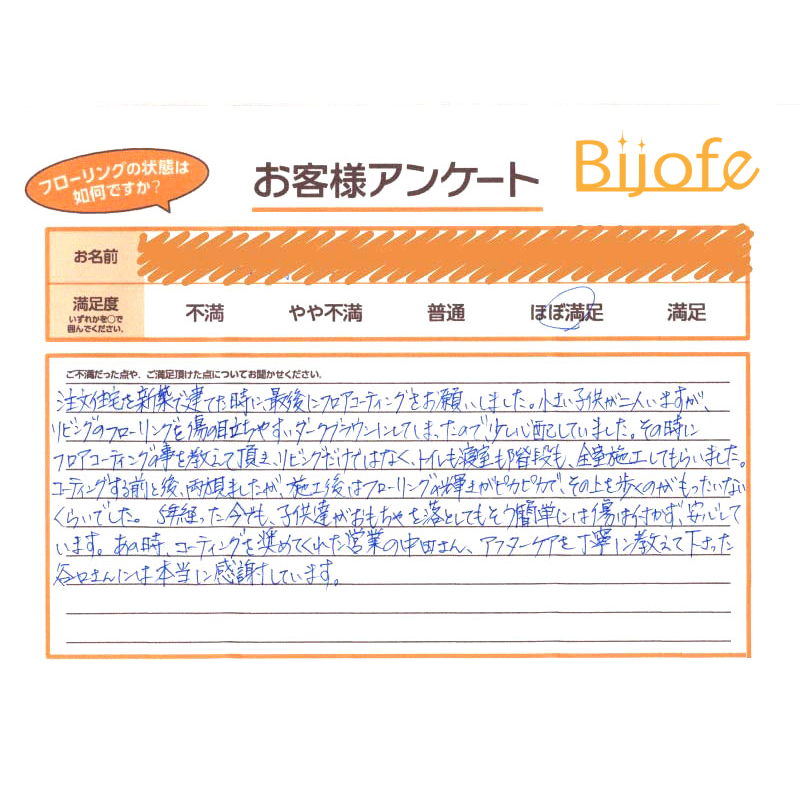 フローリングの状態は
如何ですか？
お客様アンケート
Bijofe
お名前
満足度
いずれかを○で
囲んでください。
不満 やや不満 普通 ほぼ満足 満足
ご不満だった点や、ご満足頂けた点についてお聞かせください。
注文住宅を新築で建てた時に、最後にフロアコーティングをお願いしました。小さい子供が二人いますが、
リビングのフローリングを傷の目立ちやすいダークブラウンにしてしまったので少し心配していました。その時に
フロアコーティングの事を教えて頂き、リビングだけではなく、トイレも寝室も階段も、全室施工してもらいました。
コーティングする前と後、両方見ましたが、施工後はフローリングの輝きがピカピカで、その上を歩くのがもったいない
くらいでした。 5年経った今でも、子供達がおもちゃを落としてもそう簡単には傷は付かず、安心して
います。あの時、コーティングを奨めてくれた営業の中田さん、アフターケアを丁寧に教えて下さった
谷口さんには本当に感謝しています。